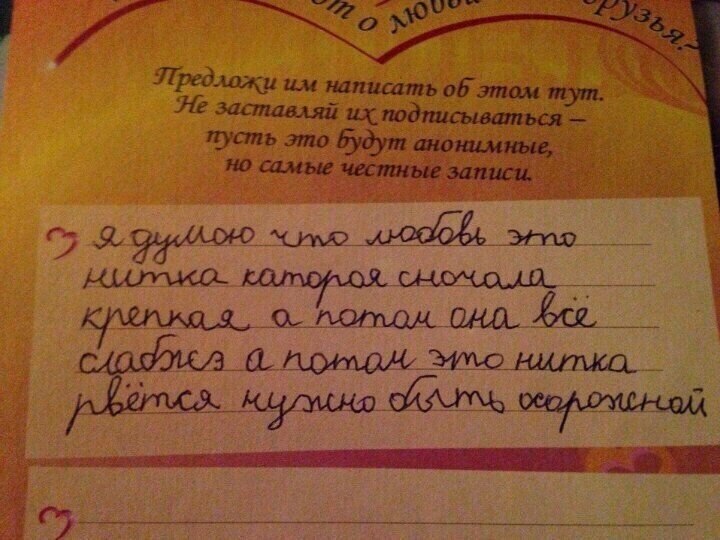 от о любви
друзья?
Предложи им написать об этом тут.
Не заставляй их подписываться –
пусть это будут анонимные,
но самые честные записи.
я думою что любовь это
нитка катороя сночала
крепкая а потом она всё
слабжэ а потом это нитка
рвётся нужно быть охорожной